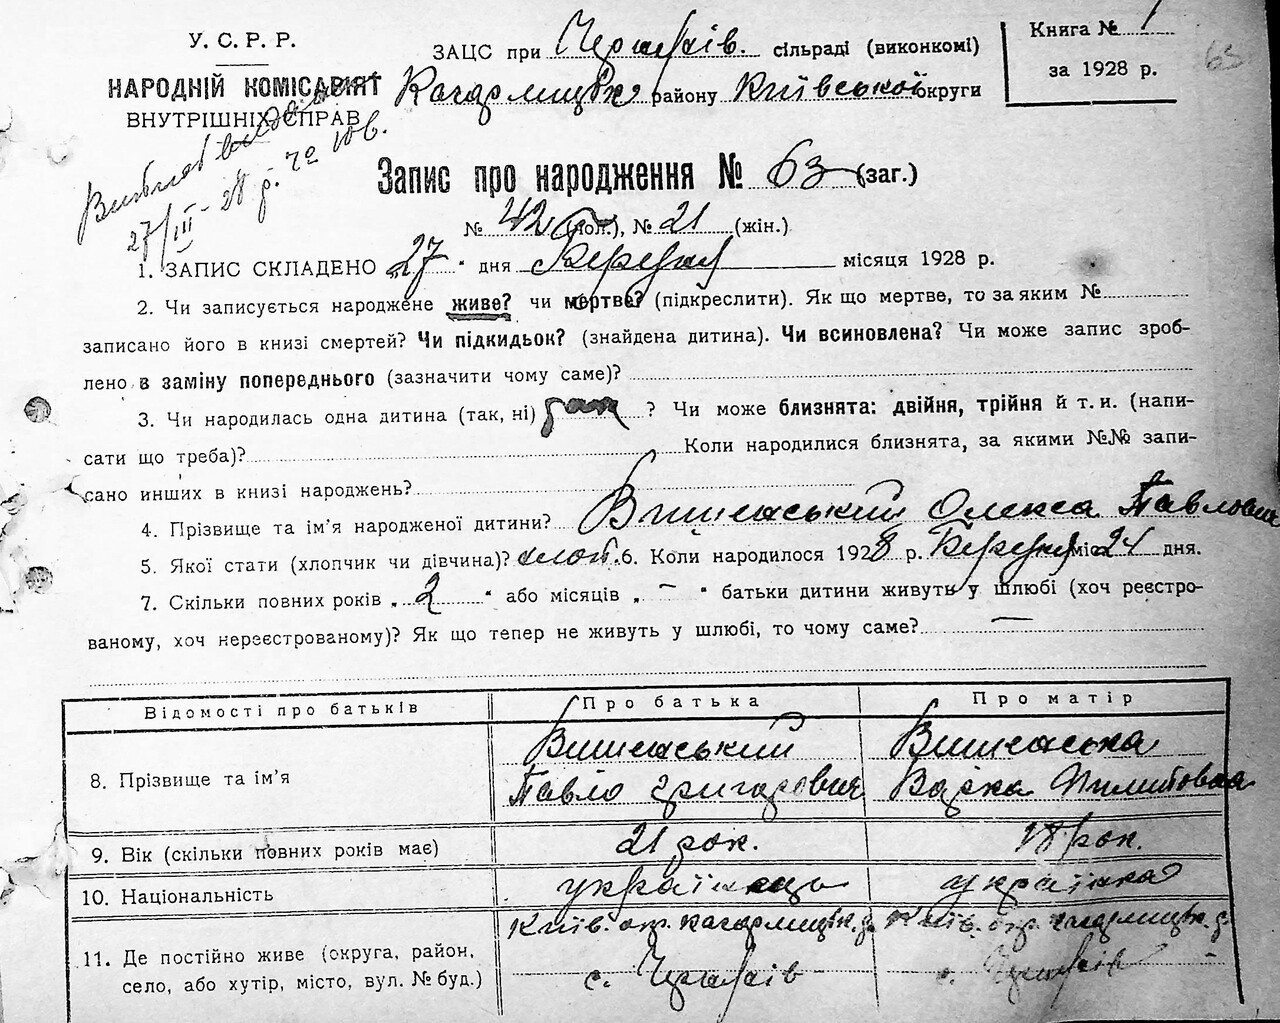 У. С. Р. Р.
НАРОДНІЙ КОМІСАРІЯТ
ВНУТРІШНІХ СПРАВ
ЗАЦС при сільраді (виконкомі)
Кагарлицьк району Київської округи
Книга № 1
за 1928 р.
63
27/III - 28 р.
Запис про народження № 63 (заг.)
№ 42 (пол.), № 21 (жін.)
1. ЗАПИС СКЛАДЕНО 27 " дня Березня місяця 1928 р.
2. Чи записується народжене живе? чи мертве? (підкреслити). Як що мертве, то за яким №
записано його в книзі смертей? Чи підкидьок? (знайдена дитина). Чи всиновлена? Чи може запис зроб-
лено в заміну попереднього (зазначити чому саме)?
3. Чи народилась одна дитина (так, ні) так ? Чи може близнята: двійня, трійня й т. и. (напи-
сати що треба)? Коли народилися близнята, за якими №№ запи-
сано инших в книзі народжень?
4. Прізвище та ім'я народженої дитини? Олекса Павлович
5. Якої стати (хлопчик чи дівчина)? хлоп. 6. Коли народилося 1928 р. Березня міс. 24 дня.
7. Скільки повних років „ 2 " або місяців „ — " батьки дитини живуть у шлюбі (хоч реєстро-
ваному, хоч нереєстрованому)? Як що тепер не живуть у шлюбі, то чому саме? —
Відомості про батьків Про батька Про матір
8. Прізвище та ім'я
Павло Григорович Варка Пилиповна
9. Вік (скільки повних років має) 21 рок. 18 рок.
10. Національність українець українка
Київ. окр. Кагарлицьк. р. Київ. окр. Кагарлицьк. р.
11. Де постійно живе (округа, район,
село, або хутір, місто, вул. № буд.) с. с.